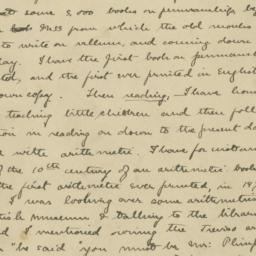 some 5,000 books on penmanship b
Mss from which the old monks
to write on vellum, and coming down
day. I have the first book on penmans
ted, and the first ever printed in English
own copy. Then reading, I have hom
teaching little children and then foll
tion in reading on down to the present d
with arithmetic. I have for instan
of the 10th century of an arithmetic book
the first arithmetic ever printed, in 147
I was looking over some arithmetics
tish Museum & talking to the librar
d I mentioned owning the Treviso ar
"he said" you must be Mr. Plimp